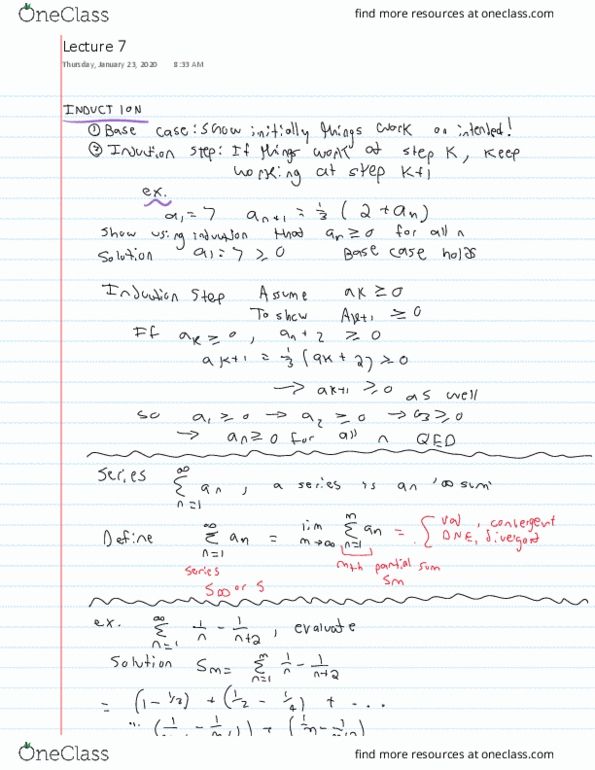 OneClass
find more resources at oneclass.com
Lecture 7
Thursday, January 23, 2020 8:33 AM
INDUCTION
① Base case: show initially things work as intended!
② Induction step: If things work at step K, keep
working at step K+1
ex.
a₁ = 7 aₙ₊₁ = 1/3 (2 + aₙ)
Show using induction that aₙ ≥ 0 for all n
Solution a₁ = 7 ≥ 0 Base case holds
Induction Step Assume aₖ ≥ 0
To show Aₖ₊₁ ≥ 0
If aₖ ≥ 0, aₙ + 2 ≥ 0
aₖ₊₁ = 1/3 (aₖ + 2) ≥ 0
→ aₖ₊₁ ≥ 0 as well
So a₁ ≥ 0 → a₂ ≥ 0 → a₃ ≥ 0
→ aₙ ≥ 0 for all n QED
Series ∞ Σ n=1 aₙ, a series is an "∞ sum"
Define ∞ Σ n=1 aₙ = lim m→∞ m Σ n=1 aₙ = { val, convergent
DNE, divergent
series mth partial sum
S∞ or S Sm
ex. ∞ Σ n=1 1/n - 1/n+2, evaluate
Solution Sm = m Σ n=1 1/n - 1/n+2
= (1 - 1/3) + (1/2 - 1/4) + ...
OneClass
find more resources at oneclass.com